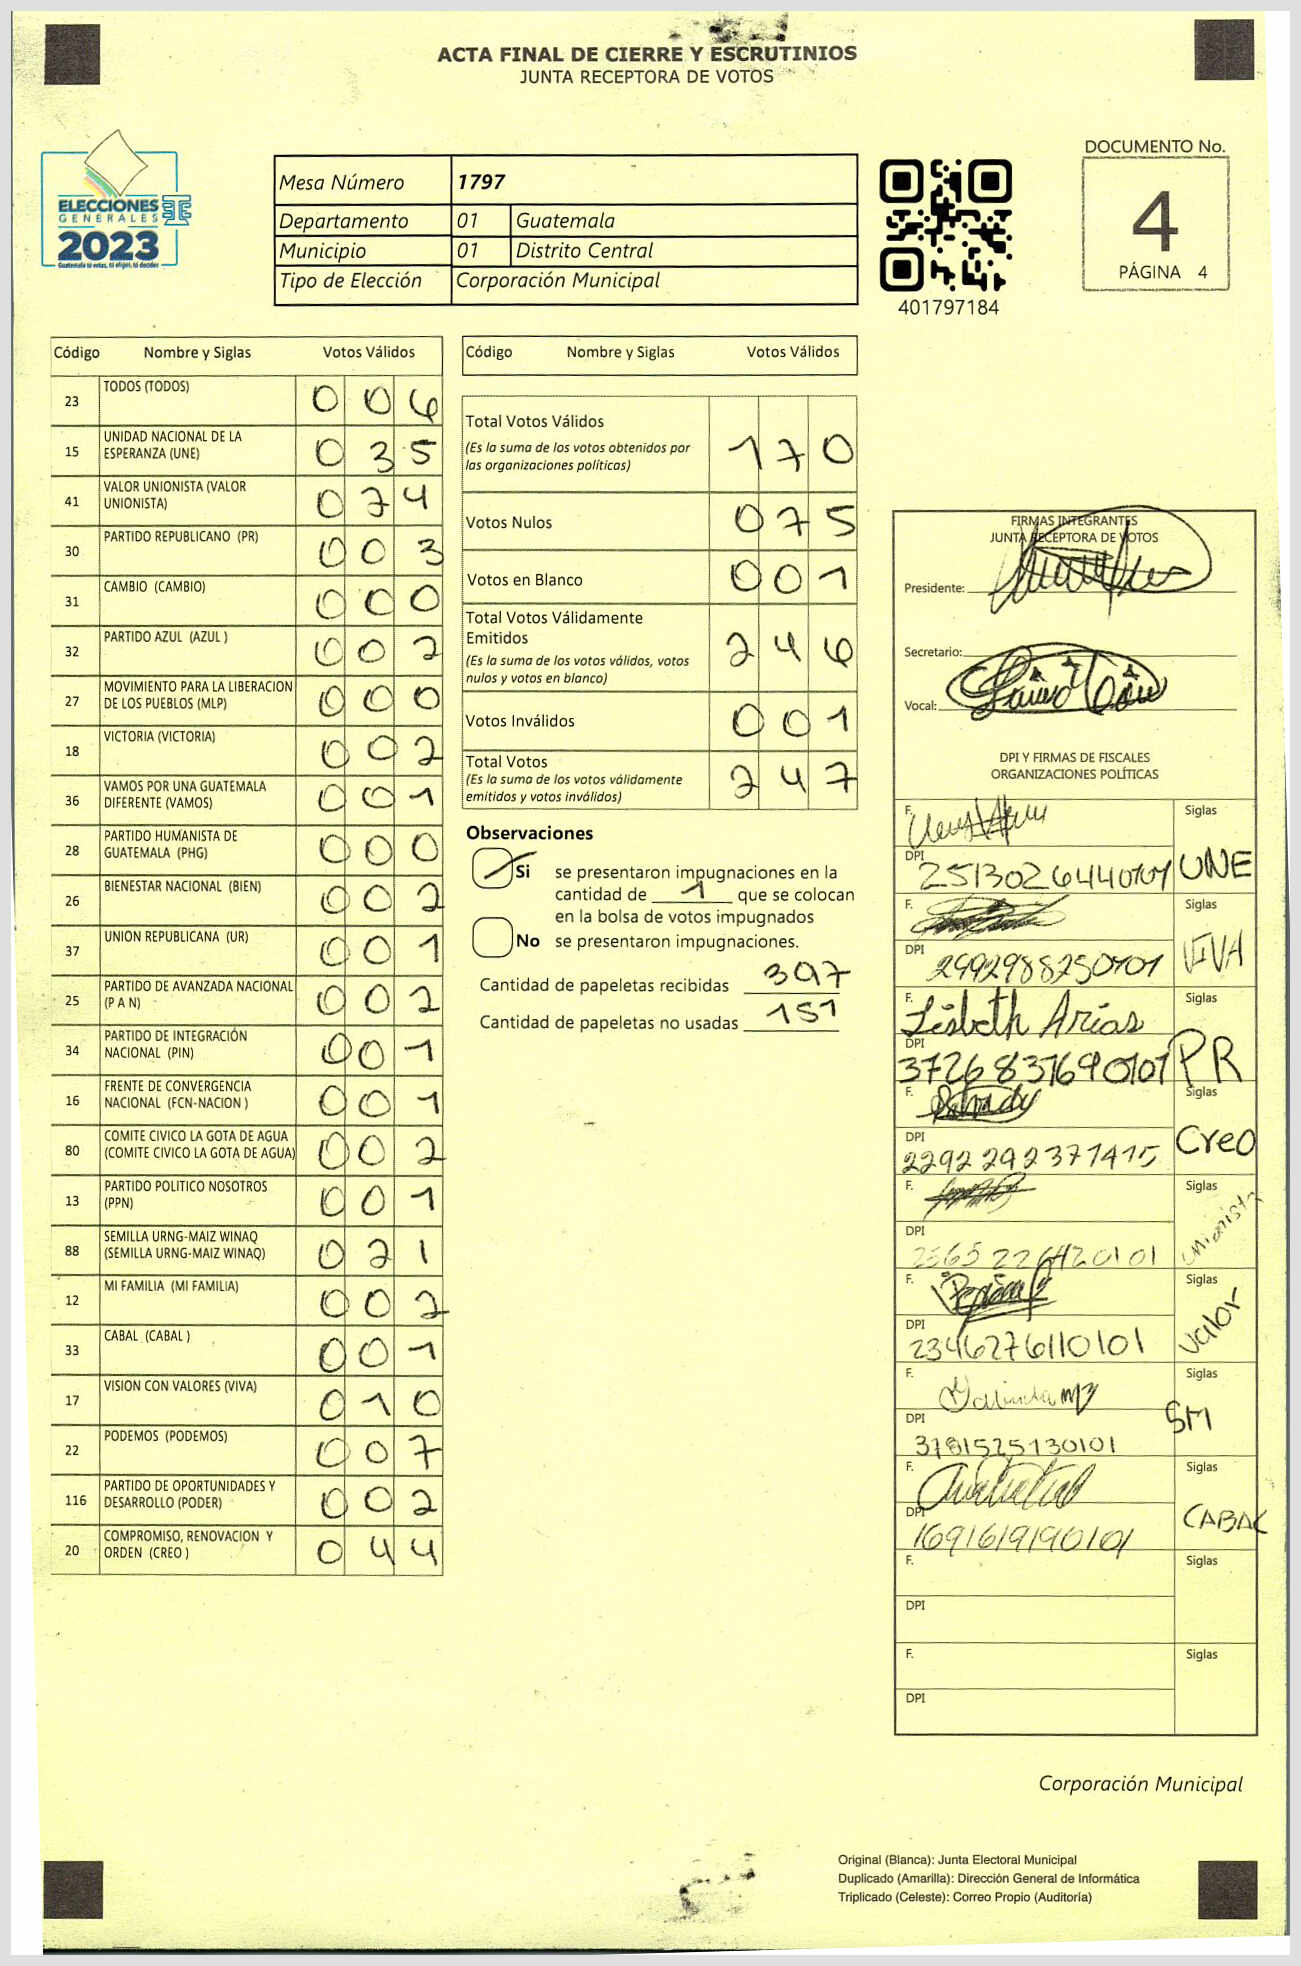 ACTA FINAL DE CIERRE Y ESCRUTINIOS
JUNTA RECEPTORA DE VOTOS
ELECCIONES
GENERALES
2023
Guatemala tú votas, tú eliges, tú decides
TSE
Mesa Número 1797
Departamento 01 Guatemala
Municipio 01 Distrito Central
Tipo de Elección Corporación Municipal
401797184
DOCUMENTO No.
4
PÁGINA 4
Código Nombre y Siglas Votos Válidos
23 TODOS (TODOS) 0 0 6
15 UNIDAD NACIONAL DE LA ESPERANZA (UNE) 0 3 5
41 VALOR UNIONISTA (VALOR UNIONISTA) 0 2 4
30 PARTIDO REPUBLICANO (PR) 0 0 3
31 CAMBIO (CAMBIO) 0 0 0
32 PARTIDO AZUL (AZUL ) 0 0 2
27 MOVIMIENTO PARA LA LIBERACION DE LOS PUEBLOS (MLP) 0 0 0
18 VICTORIA (VICTORIA) 0 0 2
36 VAMOS POR UNA GUATEMALA DIFERENTE (VAMOS) 0 0 1
28 PARTIDO HUMANISTA DE GUATEMALA (PHG) 0 0 0
26 BIENESTAR NACIONAL (BIEN) 0 0 2
37 UNION REPUBLICANA (UR) 0 0 1
25 PARTIDO DE AVANZADA NACIONAL (P A N) 0 0 2
34 PARTIDO DE INTEGRACIÓN NACIONAL (PIN) 0 0 1
16 FRENTE DE CONVERGENCIA NACIONAL (FCN-NACION ) 0 0 1
80 COMITE CIVICO LA GOTA DE AGUA (COMITE CIVICO LA GOTA DE AGUA) 0 0 2
13 PARTIDO POLITICO NOSOTROS (PPN) 0 0 1
88 SEMILLA URNG-MAIZ WINAQ (SEMILLA URNG-MAIZ WINAQ) 0 2 1
12 MI FAMILIA (MI FAMILIA) 0 0 2
33 CABAL (CABAL ) 0 0 1
17 VISION CON VALORES (VIVA) 0 1 0
22 PODEMOS (PODEMOS) 0 0 7
116 PARTIDO DE OPORTUNIDADES Y DESARROLLO (PODER) 0 0 2
20 COMPROMISO, RENOVACION Y ORDEN (CREO ) 0 4 4
Código Nombre y Siglas Votos Válidos
Total Votos Válidos 1 7 0
(Es la suma de los votos obtenidos por
las organizaciones políticas)
Votos Nulos 0 7 5
Votos en Blanco 0 0 1
Total Votos Válidamente
Emitidos 2 4 6
(Es la suma de los votos válidos, votos
nulos y votos en blanco)
Votos Inválidos 0 0 1
Total Votos 2 4 7
(Es la suma de los votos válidamente
emitidos y votos inválidos)
Observaciones
Si se presentaron impugnaciones en la
cantidad de 1 que se colocan
en la bolsa de votos impugnados
No se presentaron impugnaciones.
Cantidad de papeletas recibidas 397
Cantidad de papeletas no usadas 151
FIRMAS INTEGRANTES
JUNTA RECEPTORA DE VOTOS
Presidente:
Secretario:
Vocal:
DPI Y FIRMAS DE FISCALES
ORGANIZACIONES POLÍTICAS
F. Siglas
DPI 2513026440101 UNE
F. Siglas
DPI 2992988250101 VIVA
F. Lisbeth Arias Siglas
DPI 3726831690101 PR
F. Siglas
DPI 2292292371415 Creo
F. Siglas
DPI 2565226420101 Unionista
F. Siglas
DPI 2346276110101 Valor
F. Siglas
DPI 3781525130101 SM
F. Siglas
DPI 1691619190101 CABAL
F. Siglas
DPI
F. Siglas
DPI
Corporación Municipal
Original (Blanca): Junta Electoral Municipal
Duplicado (Amarilla): Dirección General de Informática
Triplicado (Celeste): Correo Propio (Auditoría)